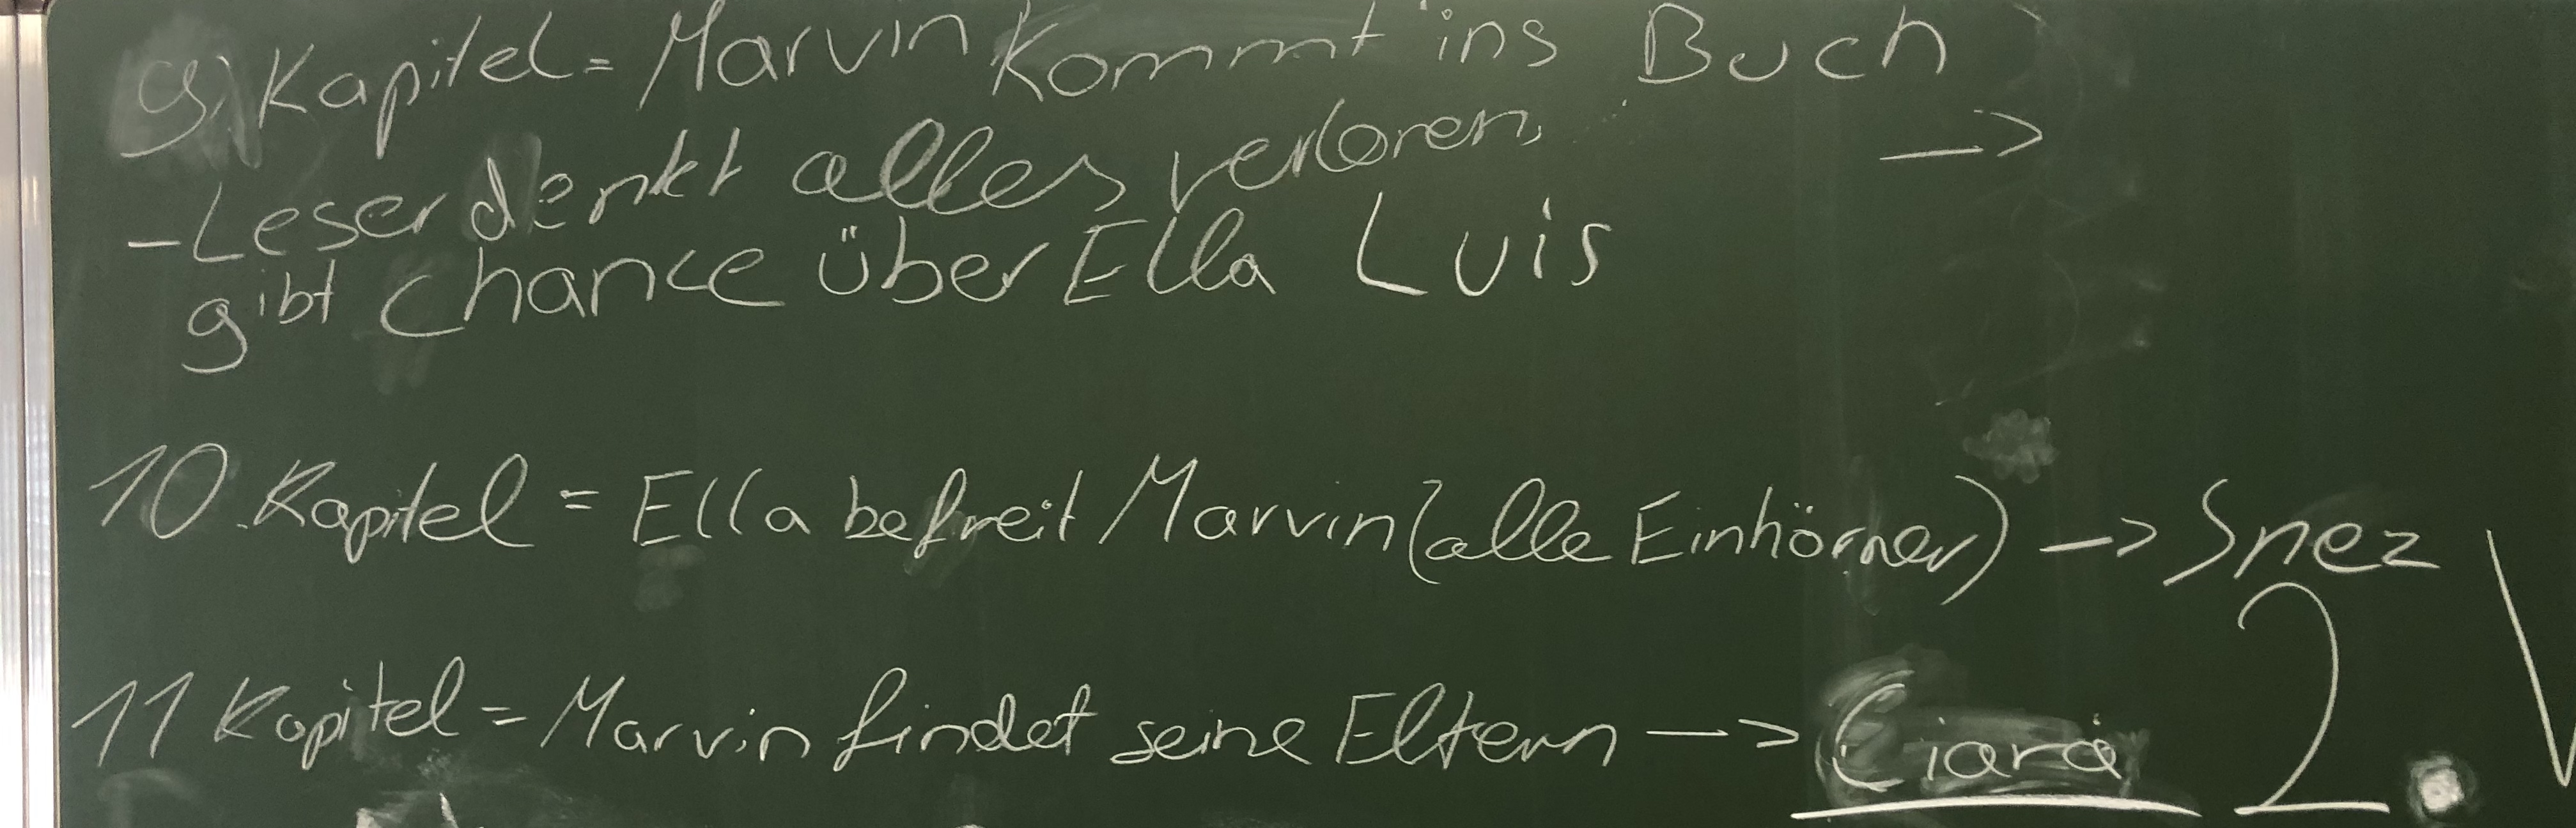 9. Kapitel = Marvin kommt ins Buch →
- Leser denkt alles verloren,
gibt chance über Ella Luis
10. Kapitel = Ella befreit Marvin (alle Einhörner) → Snez
11 Kapitel = Marvin findet seine Eltern → Ciara 2.